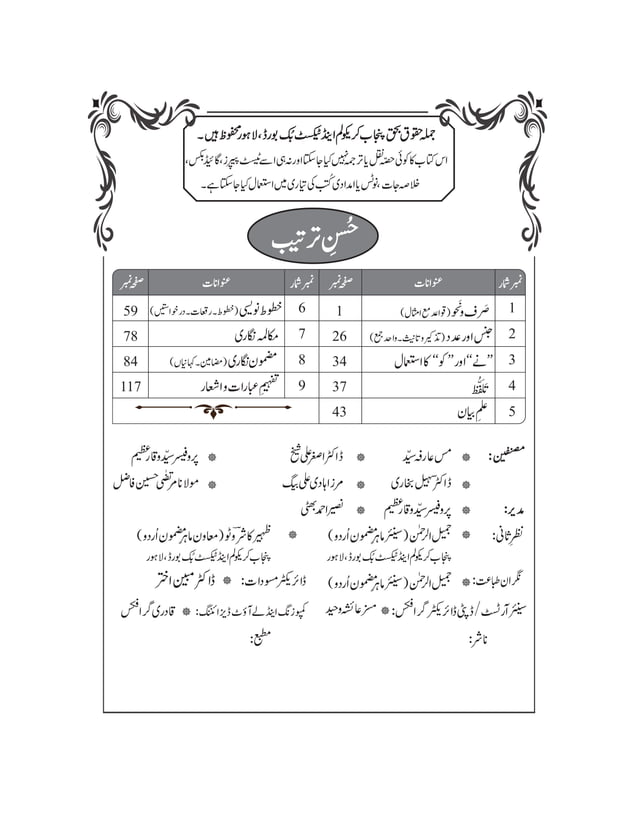 جملہ حقوق بحق پنجاب کریکولم اینڈ ٹیکسٹ بُک بورڈ، لاہور محفوظ ہیں۔
اس کتاب کا کوئی حصہ نقل یا ترجمہ نہیں کیا جا سکتا اور نہ ہی اسے ٹیسٹ پیپرز، گائیڈ بکس،
خلاصہ جات، نوٹس یا امدادی کُتب کی تیاری میں استعمال کیا جا سکتا ہے۔
حُسنِ ترتیب
نمبر شمار عنوانات صفحہ نمبر نمبر شمار عنوانات صفحہ نمبر
1 صَرف و نَحو (قواعد مع امثال) 1 6 خطوط نویسی (خطوط۔ رقعات۔ درخواستیں) 59
2 جنس اور عدد (تذکیر و تانیث۔ واحد جمع) 26 7 مکالمہ نگاری 78
3 ”نے“ اور ”کو“ کا استعمال 34 8 مضمون نگاری (مضامین۔ کہانیاں) 84
4 تلفّظ 37 9 تفہیمِ عبارات و اشعار 117
5 علمِ بیان 43
مصنفین: مس عارفہ سیّد ڈاکٹر اصغر علی شیخ پروفیسر سیّد وقار عظیم
ڈاکٹر سہیل بخاری مرزا ہادی علی بیگ مولانا مرتضٰی حسین فاضل
مدیر: پروفیسر سیّد وقار عظیم نصیر احمد بھٹی
نظرِ ثانی: جمیل الرحمٰن (سینئر ماہر مضمون اُردو) ظہیر کاشر وٹو (معاون ماہر مضمون اُردو)
پنجاب کریکولم اینڈ ٹیکسٹ بُک بورڈ، لاہور پنجاب کریکولم اینڈ ٹیکسٹ بُک بورڈ، لاہور
نگران طباعت: جمیل الرحمٰن (سینئر ماہر مضمون اُردو) ڈائریکٹر مسودات: ڈاکٹر مبین اختر
سینئر آرٹسٹ / ڈپٹی ڈائریکٹر گرافکس: مسز عائشہ وحید کمپوزنگ اینڈ لے آؤٹ ڈیزائننگ: قادری گرافکس
ناشر: مطبع: